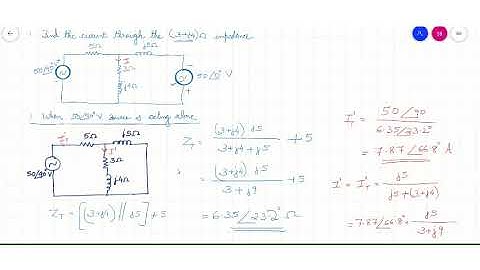 Find the current through the (3+j4)Ω impedance
5Ω j5Ω
I
3Ω
j4Ω
50/90° V
50/0° V
1. When 50/90° V source is acting alone
5Ω j5Ω
I'
3Ω
j4Ω
50/90° V
Z_T = [(3+j4) || j5] + 5
Z_T = (3+j4) j5 / (3+j4+j5) + 5
= (3+j4) j5 / (3+j9) + 5
= 6.35/23.2° Ω
I_T' = 50/90 / 6.35/23.2°
= 7.87/66.8° A
I' = I_T' × j5 / (j5+(3+j4))
= 7.87/66.8° × j5 / (3+j9)